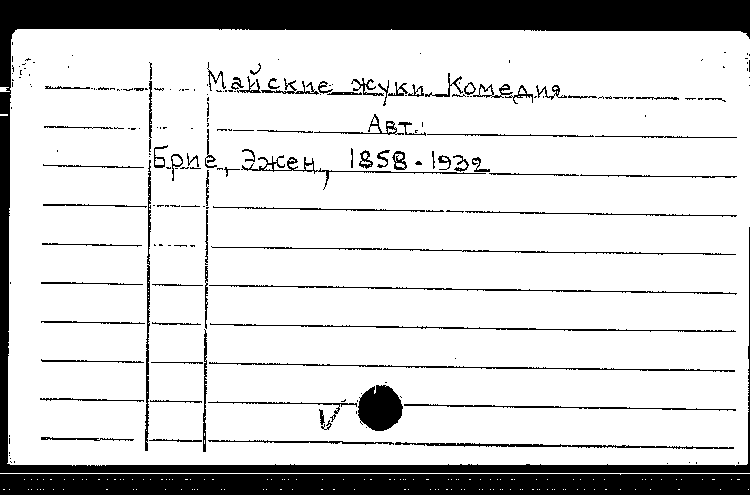 Майские жуки. Комедия
Авт.:
Брие, Эжен, 1858-1932
V